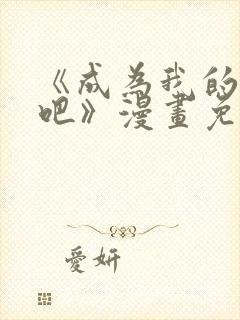 《成為我的
吧》漫畫免
愛妍